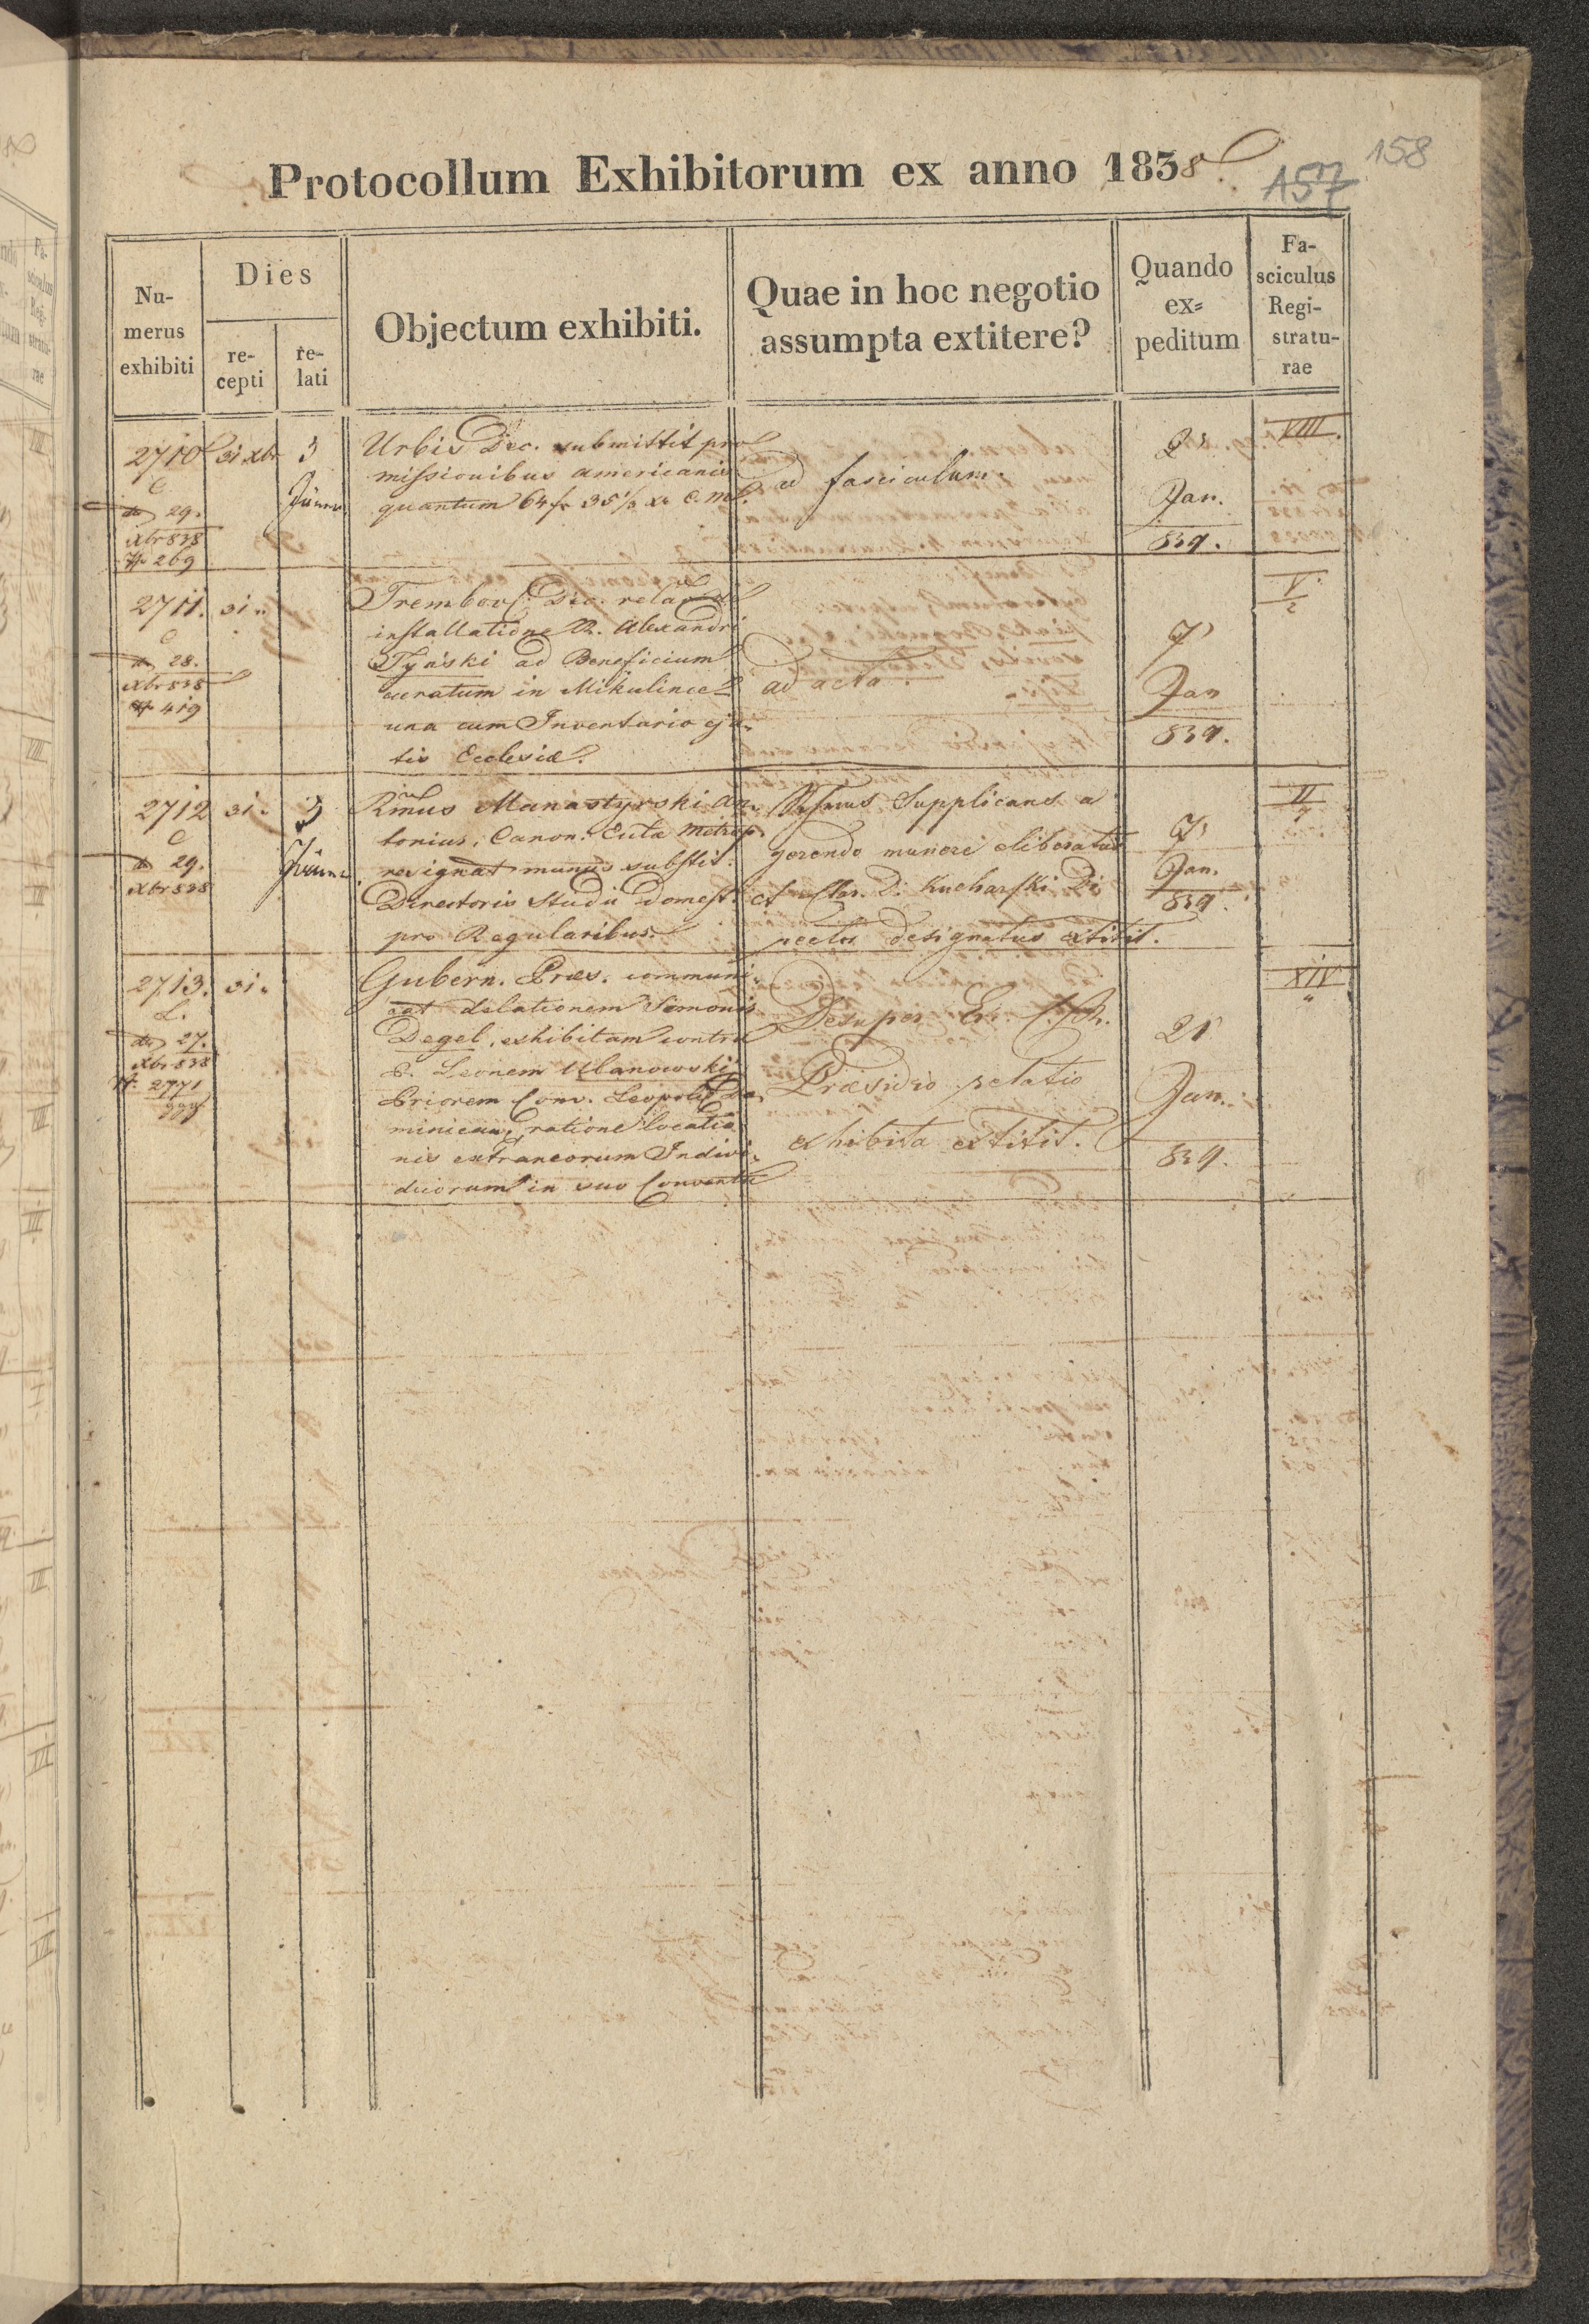 Protocollum Exhibitorum ex anno 1838
157 158
Nu-
merus
exhibiti
Dies
re-
cepti
re-
lati
Objectum exhibiti.
Quae in hoc negotio
assumpta extitere?
Quando
ex=
peditum
Fa-
sciculus
Regi-
stratu-
rae
2710
C
29.
xbr 838
269
31 xbr
3
Jänner
Urbis Dec. submittit pro
missionibus americanis
quantum 64 fr 35 1/2 xr C. M.
ad fasciculum.
2
Jan.
839.
VIII.
2711.
C
28.
xbr 838
N 419
31.
Trembovl. Dec. relat de
installatione R. Alexandri
Tyński ad Beneficium
curatum in Mikulince
una cum Inventario eja-
tis Ecclesiæ.
ad acta.
7
Jan
839.
V.
2
2712
C
29.
xbr 838
31.
3
Jänner.
Rmus Manastyrski An-
tonius, Canon. Cuta Metrop.
resignat munus substit.
Directoris Studii domest.
pro Regularibus.
Supplicans a
gerendo munere eliberatus
et Clar. D. Kucharski Di
rector designatus extitit.
7
Jan.
839.
II
2713.
L.
27.
xbr 838
N: 2771
31.
Gubern. Præs. communi-
cat delationem Simonis
Degel, exhibitam contra
P. Leonem Ulanowski
Priorem Conv. Leopoli Do-
minican, ratione locatio
nis extraneorum Indivi-
duorum in suo Conventu
Desuper
Præsidio relatio
exhibita extitit.
21
Jan.
839.
XIV